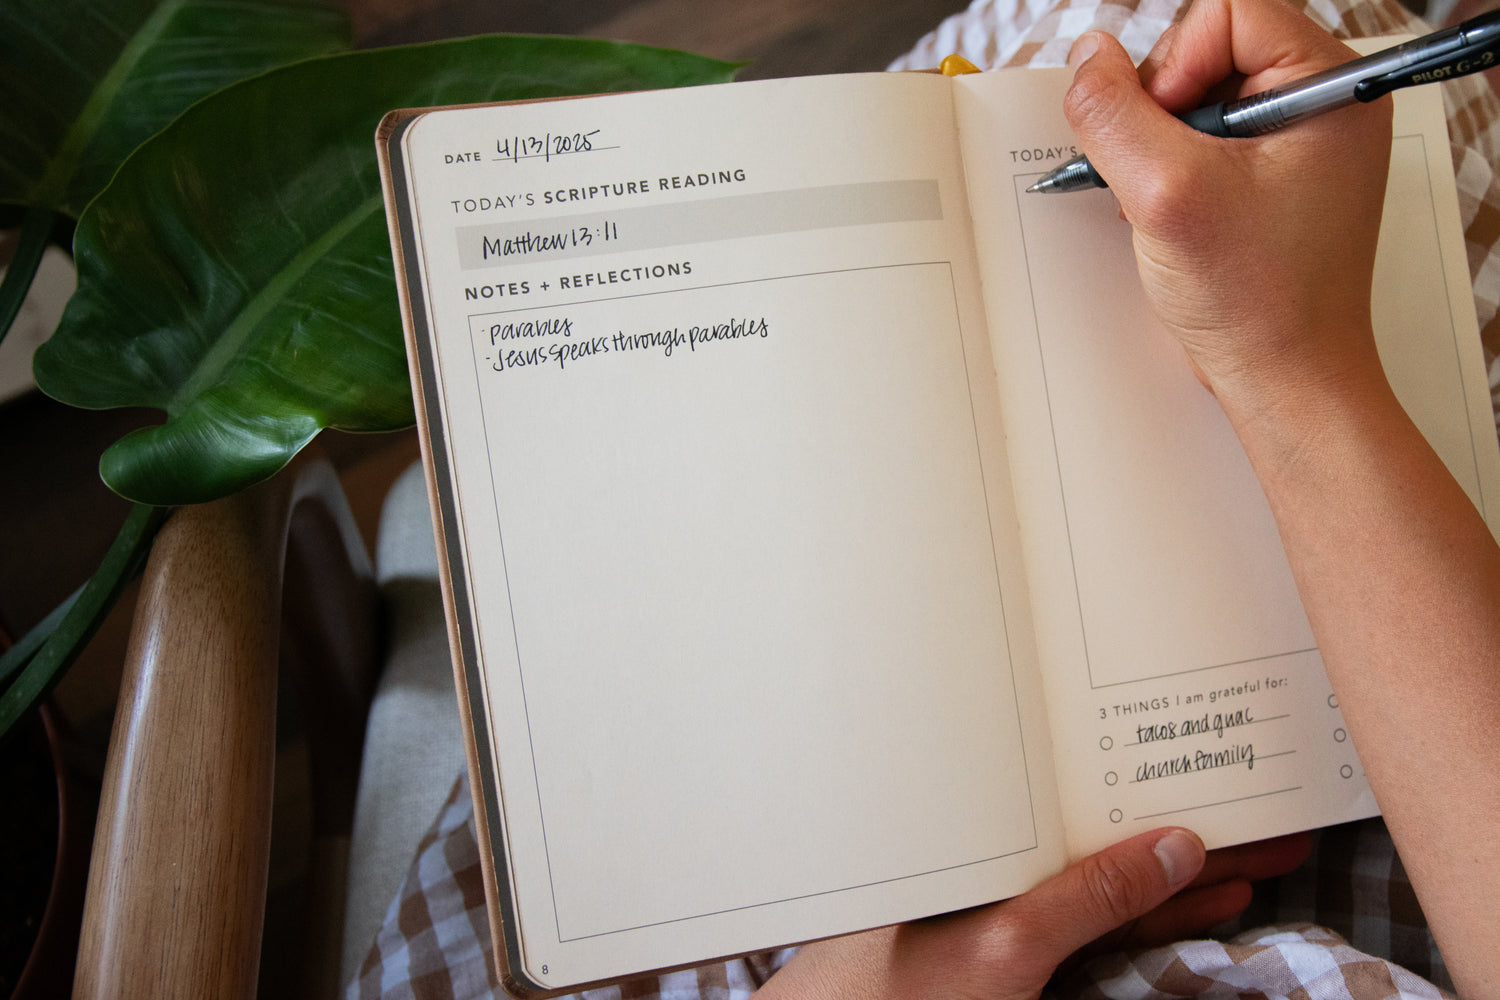 DATE 4/13/2025
TODAY'S SCRIPTURE READING
Matthew 13:11
NOTES + REFLECTIONS
· parables
· Jesus speaks through parables
8
TODAY'S
3 THINGS I am grateful for:
tacos and guac
church family
PILOT G-2